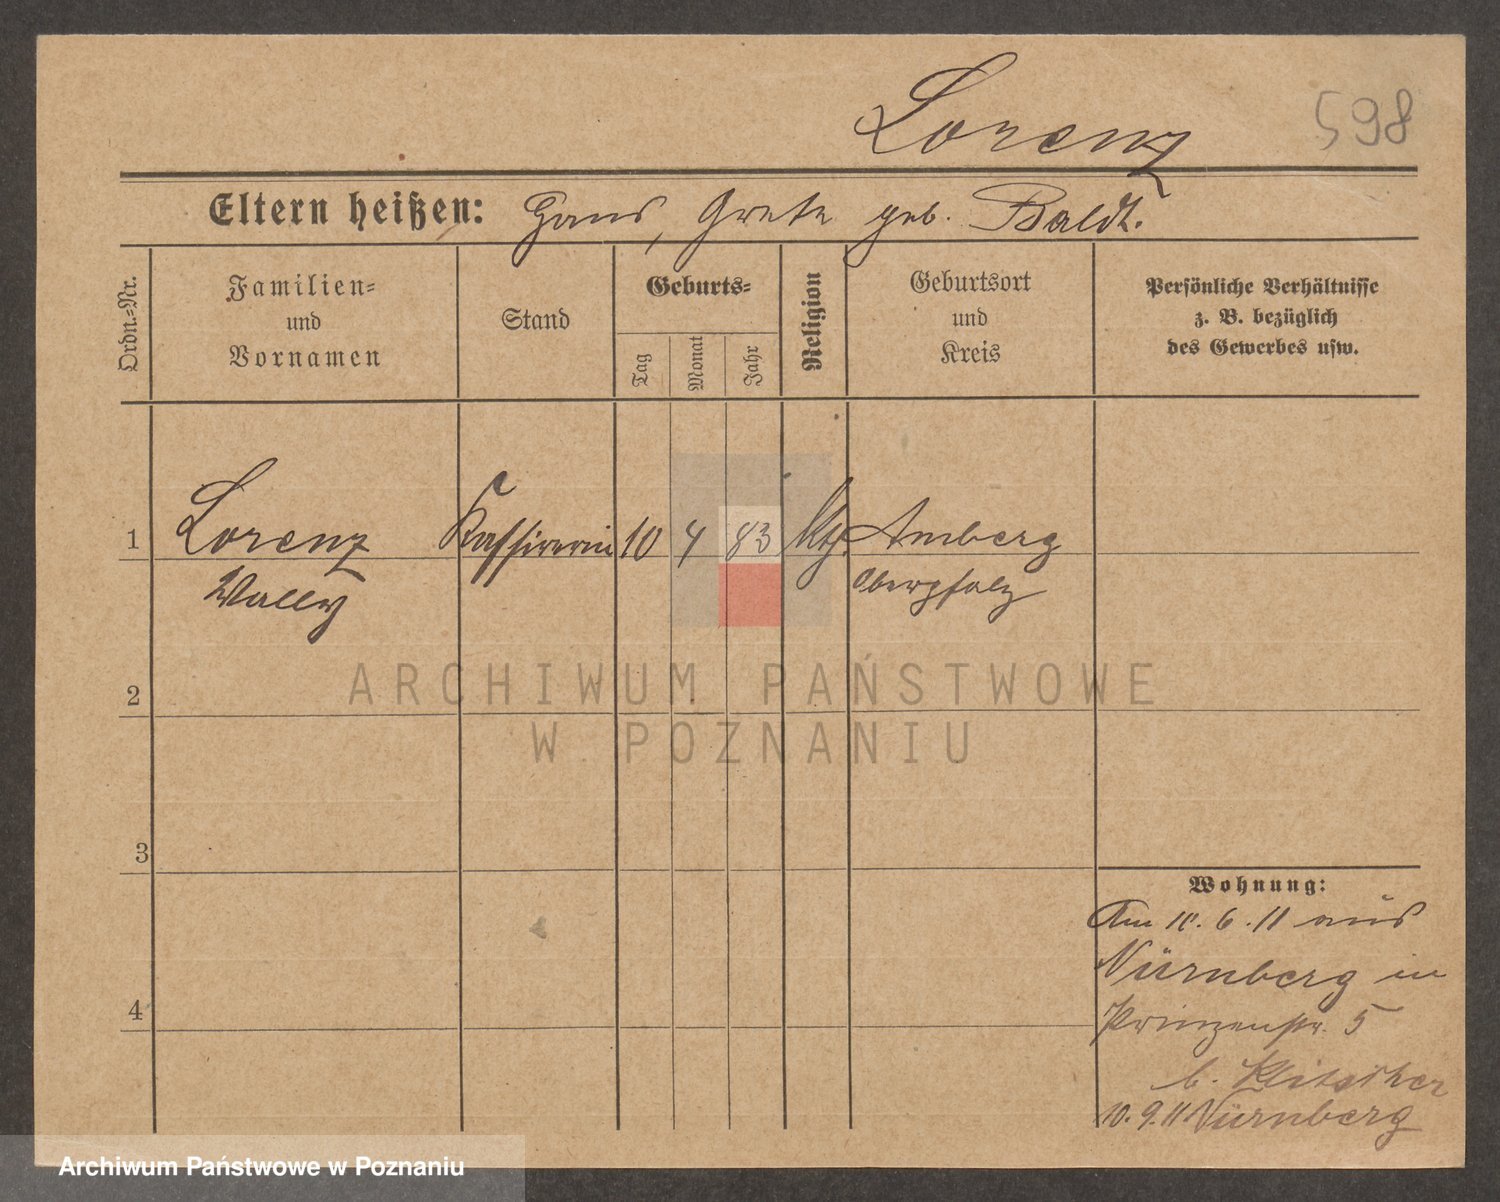 Lorenz
598
Eltern heißen: Hans, Grete geb. Baldt.
Ordn.-Nr.
Familien-
und
Vornamen
Stand
Geburts-
Tag
Monat
Jahr
Religion
Geburtsort
und
Kreis
Persönliche Verhältnisse
z. B. bezüglich
des Gewerbes usw.
1 Lorenz Kassirerin 10 4 83 kth. Amberg
Wally Oberpfalz
2
ARCHIWUM PAŃSTWOWE
W POZNANIU
3
4
Wohnung:
Am 10. 6. 11 aus
Nürnberg in
Prinzenstr. 5
b. Klitscher
10. 9. 11 Nürnberg
Archiwum Państwowe w Poznaniu